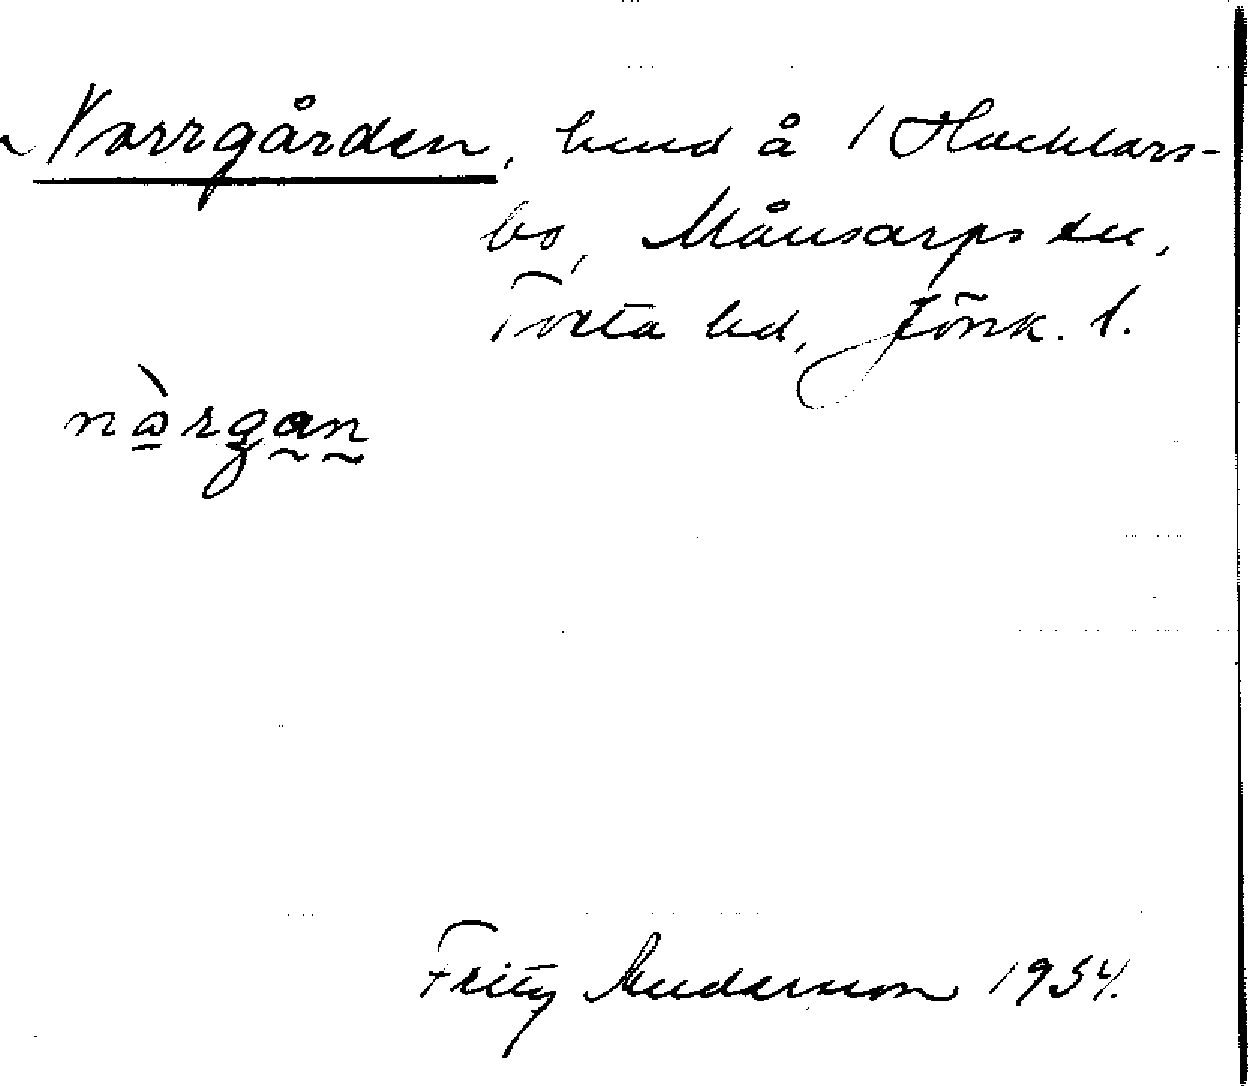 Norrgården, hmd å 1 Hacklars-
bo, Månsarps sn,
Tveta hd, Jönk. l.
nòrgan
Fritz Andersson 1934.